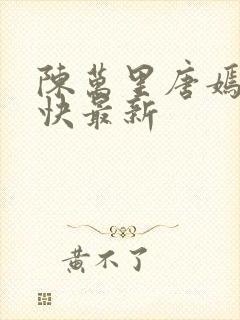 陳萬里唐嫣
快最新
黃不了